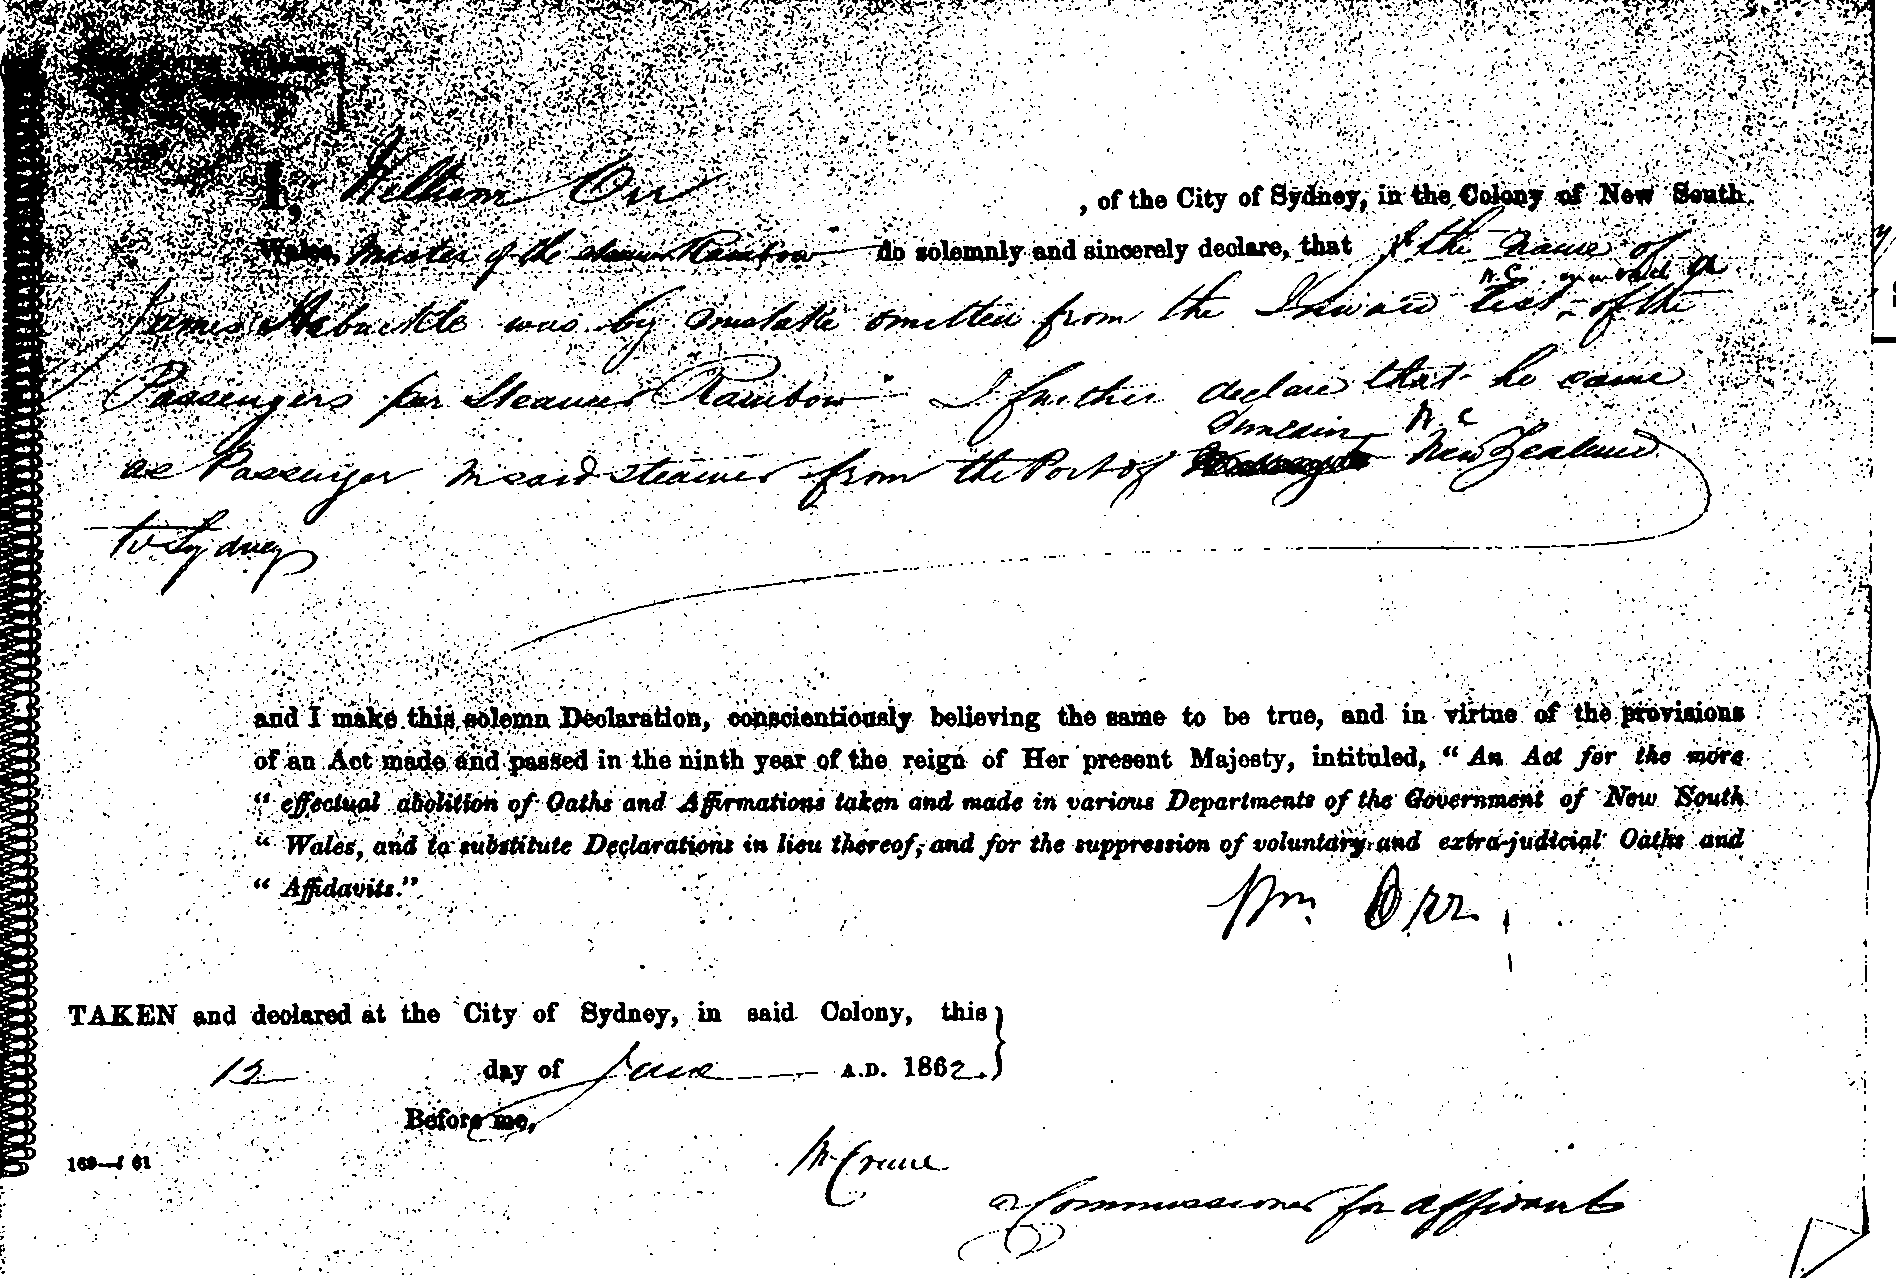 I, William Orr, of the City of Sydney, in the Colony of New South
Wales, Master of the Steamer Rainbow do solemnly and sincerely declare, that the name of
James Arbuckle was by mistake omitted from the Inward List of the
Passengers per Steamer Rainbow" I further declare that he came
Dunedin
as Passenger in said steamer from the Port of New Zealand
to Sydney
and I make this solemn Declaration, conscientiously believing the same to be true, and in virtue of the provisions
of an Act made and passed in the ninth year of the reign of Her present Majesty, intituled, "An Act for the more
" effectual abolition of Oaths and Affirmations taken and made in various Departments of the Government of New South
" Wales, and to substitute Declarations in lieu thereof, and for the suppression of voluntary and extra-judicial Oaths and
" Affidavits."
Wm. Orr
TAKEN and declared at the City of Sydney, in said Colony, this
12 day of June A.D. 1862.
Before me,
a Commissioner for affidavits